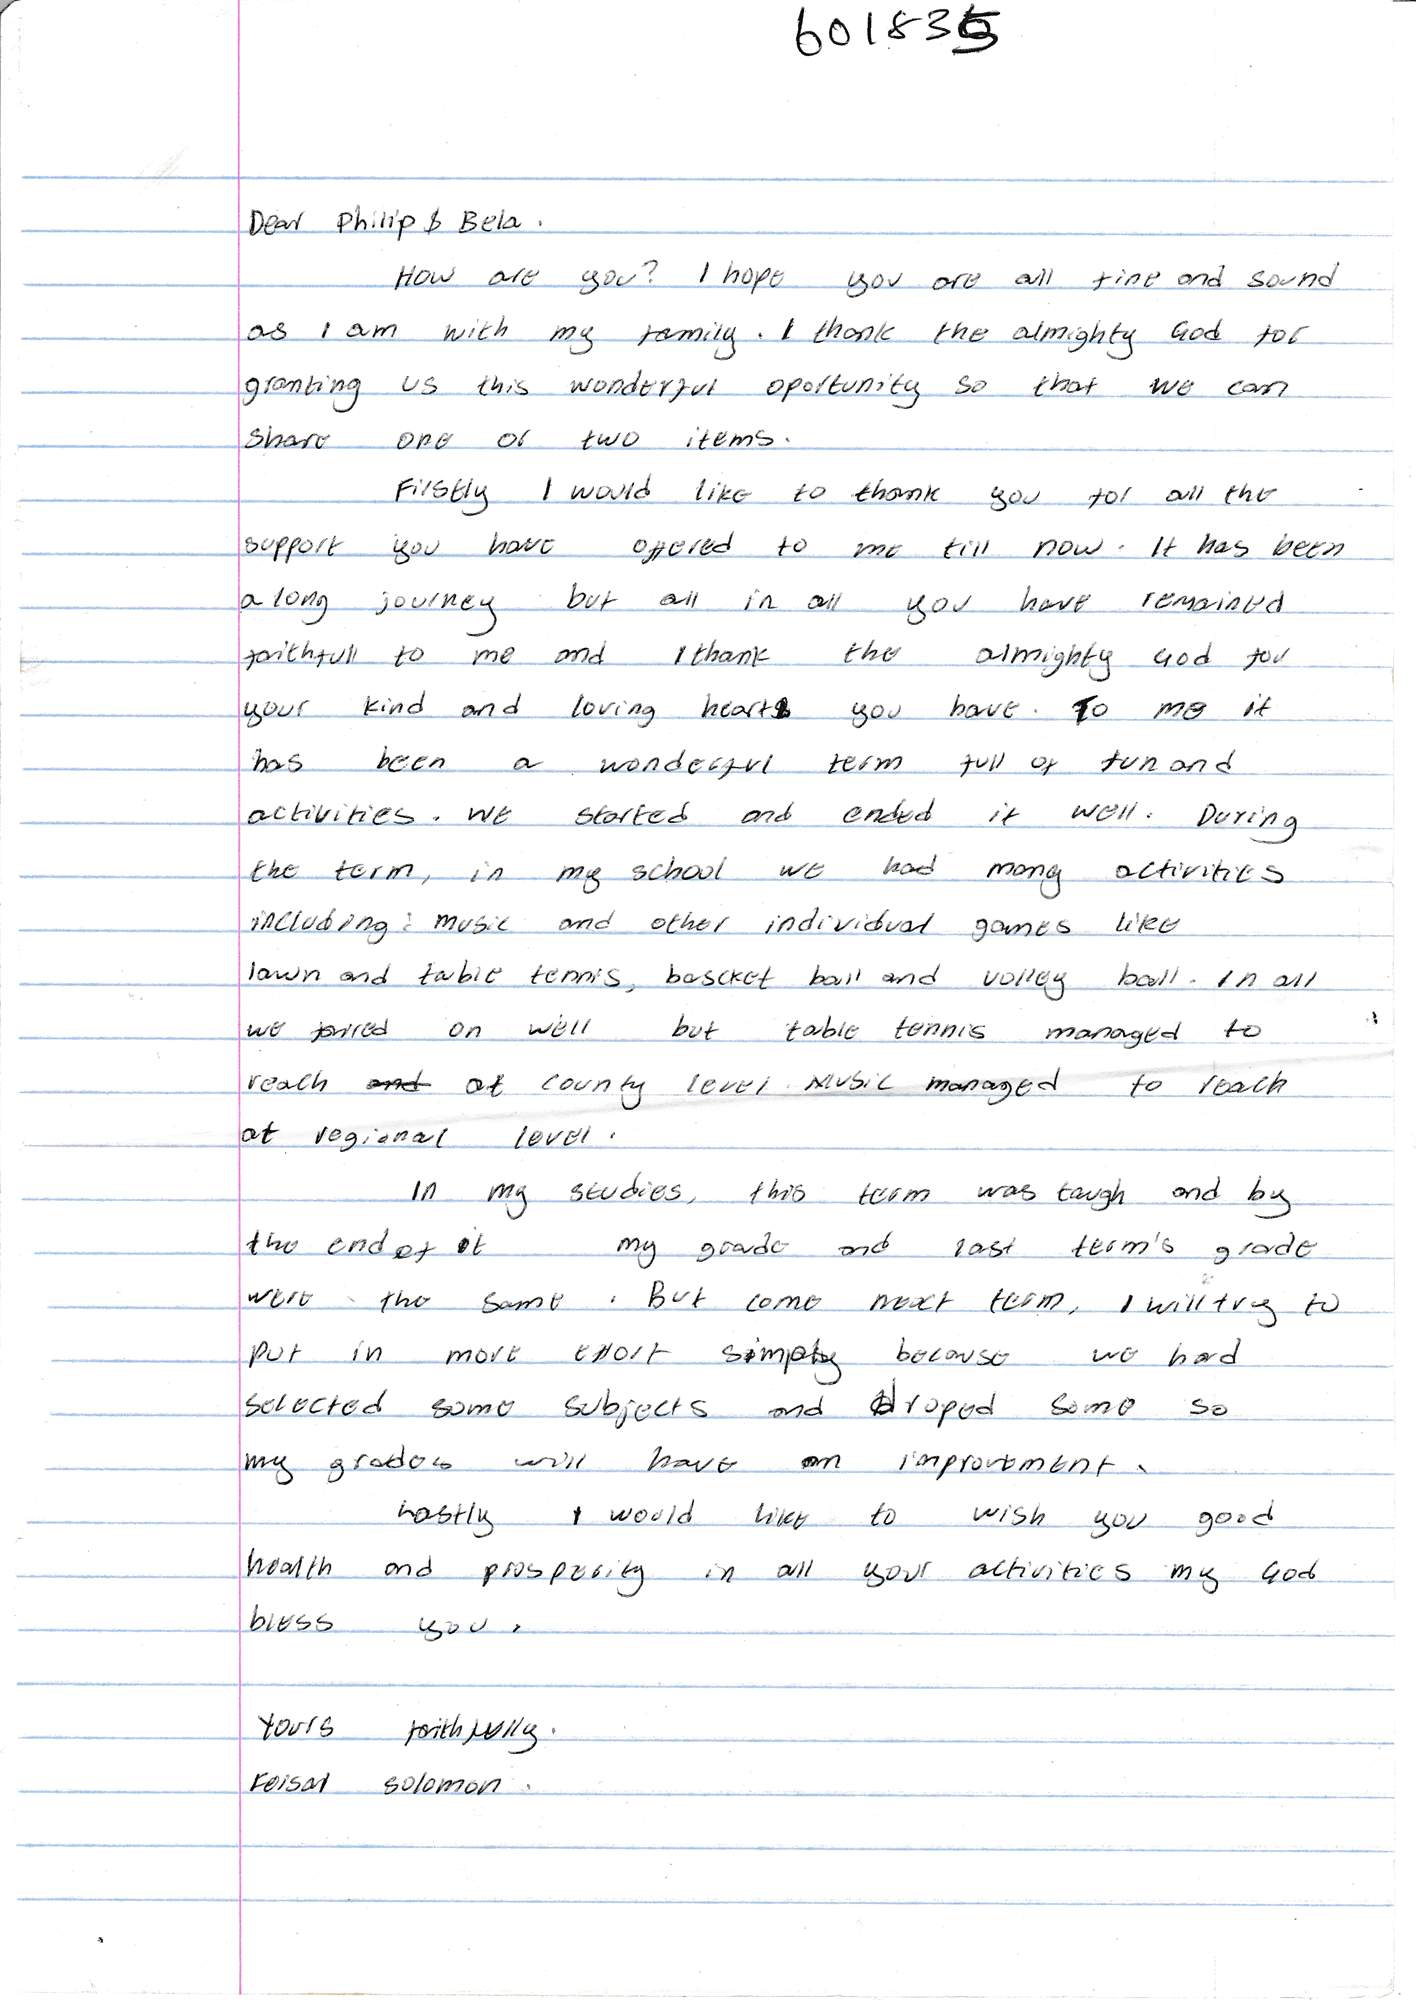 601835
Dear Philip & Bela.
How are you? I hope you are all fine and sound
as I am with my family. I thank the almighty God for
granting us this wonderful oportunity so that we can
share one or two items.
Firstly I would like to thank you for all the
support you have offered to me till now. It has been
a long journey but all in all you have remained
faithfull to me and I thank the almighty God for
your kind and loving hearts you have. To me it
has been a wonderful term full of fun and
activities. We started and ended it well. During
the term, in my school we had many activities
including: music and other individual games like
lawn and table tennis, bascket ball and volley ball. In all
we on well but table tennis managed to
reach and at county level. Music managed to reach
at regional level.
In my studies, this term was taugh and by
the end of it my grade and last term's grade
were the same. But come next term, I will try to
put in more effort simply because we hard
selected some subjects and droped some so
my grades will have an improvement.
Lastly I would like to wish you good
health and prosperity in all your activities my God
bless you.
Yours faithfully.
Feisal Solomon.